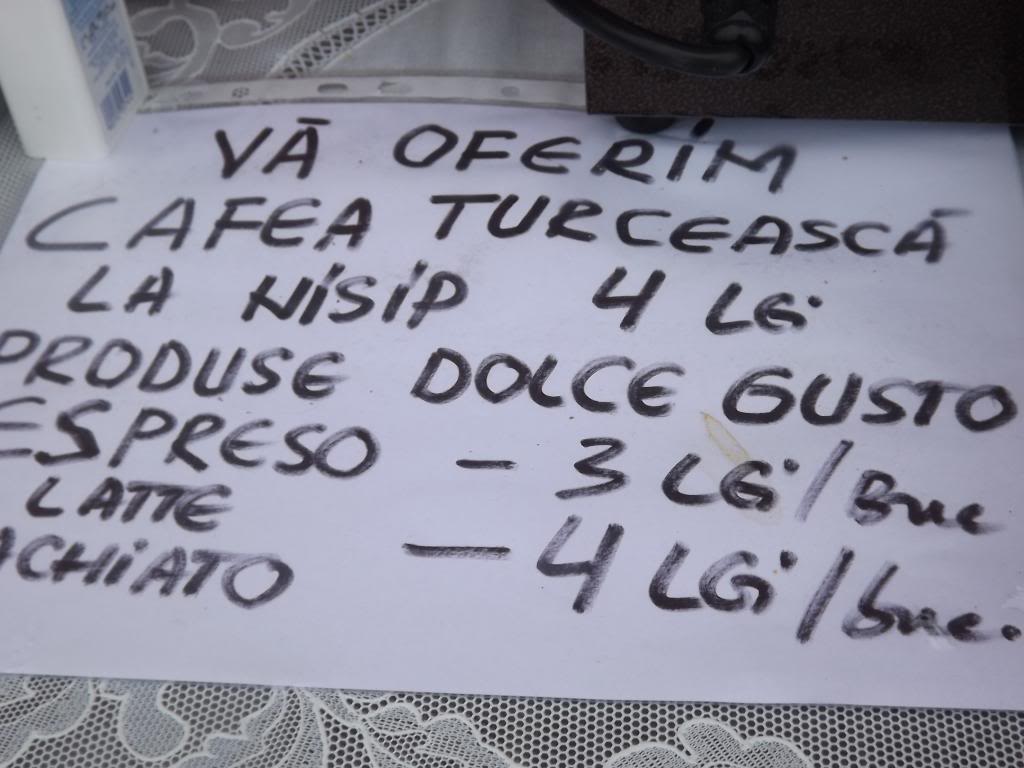 VĀ OFERIM
CAFEA TURCEASCĀ
LA NISIP 4 LEi
PRODUSE DOLCE GUSTO
ESPRESO - 3 LEi/Buc
LATTE
ACHiATO - 4 LEi/buc.